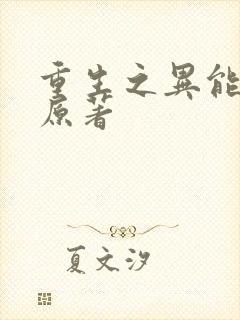 重生之異能
原著
夏文汐